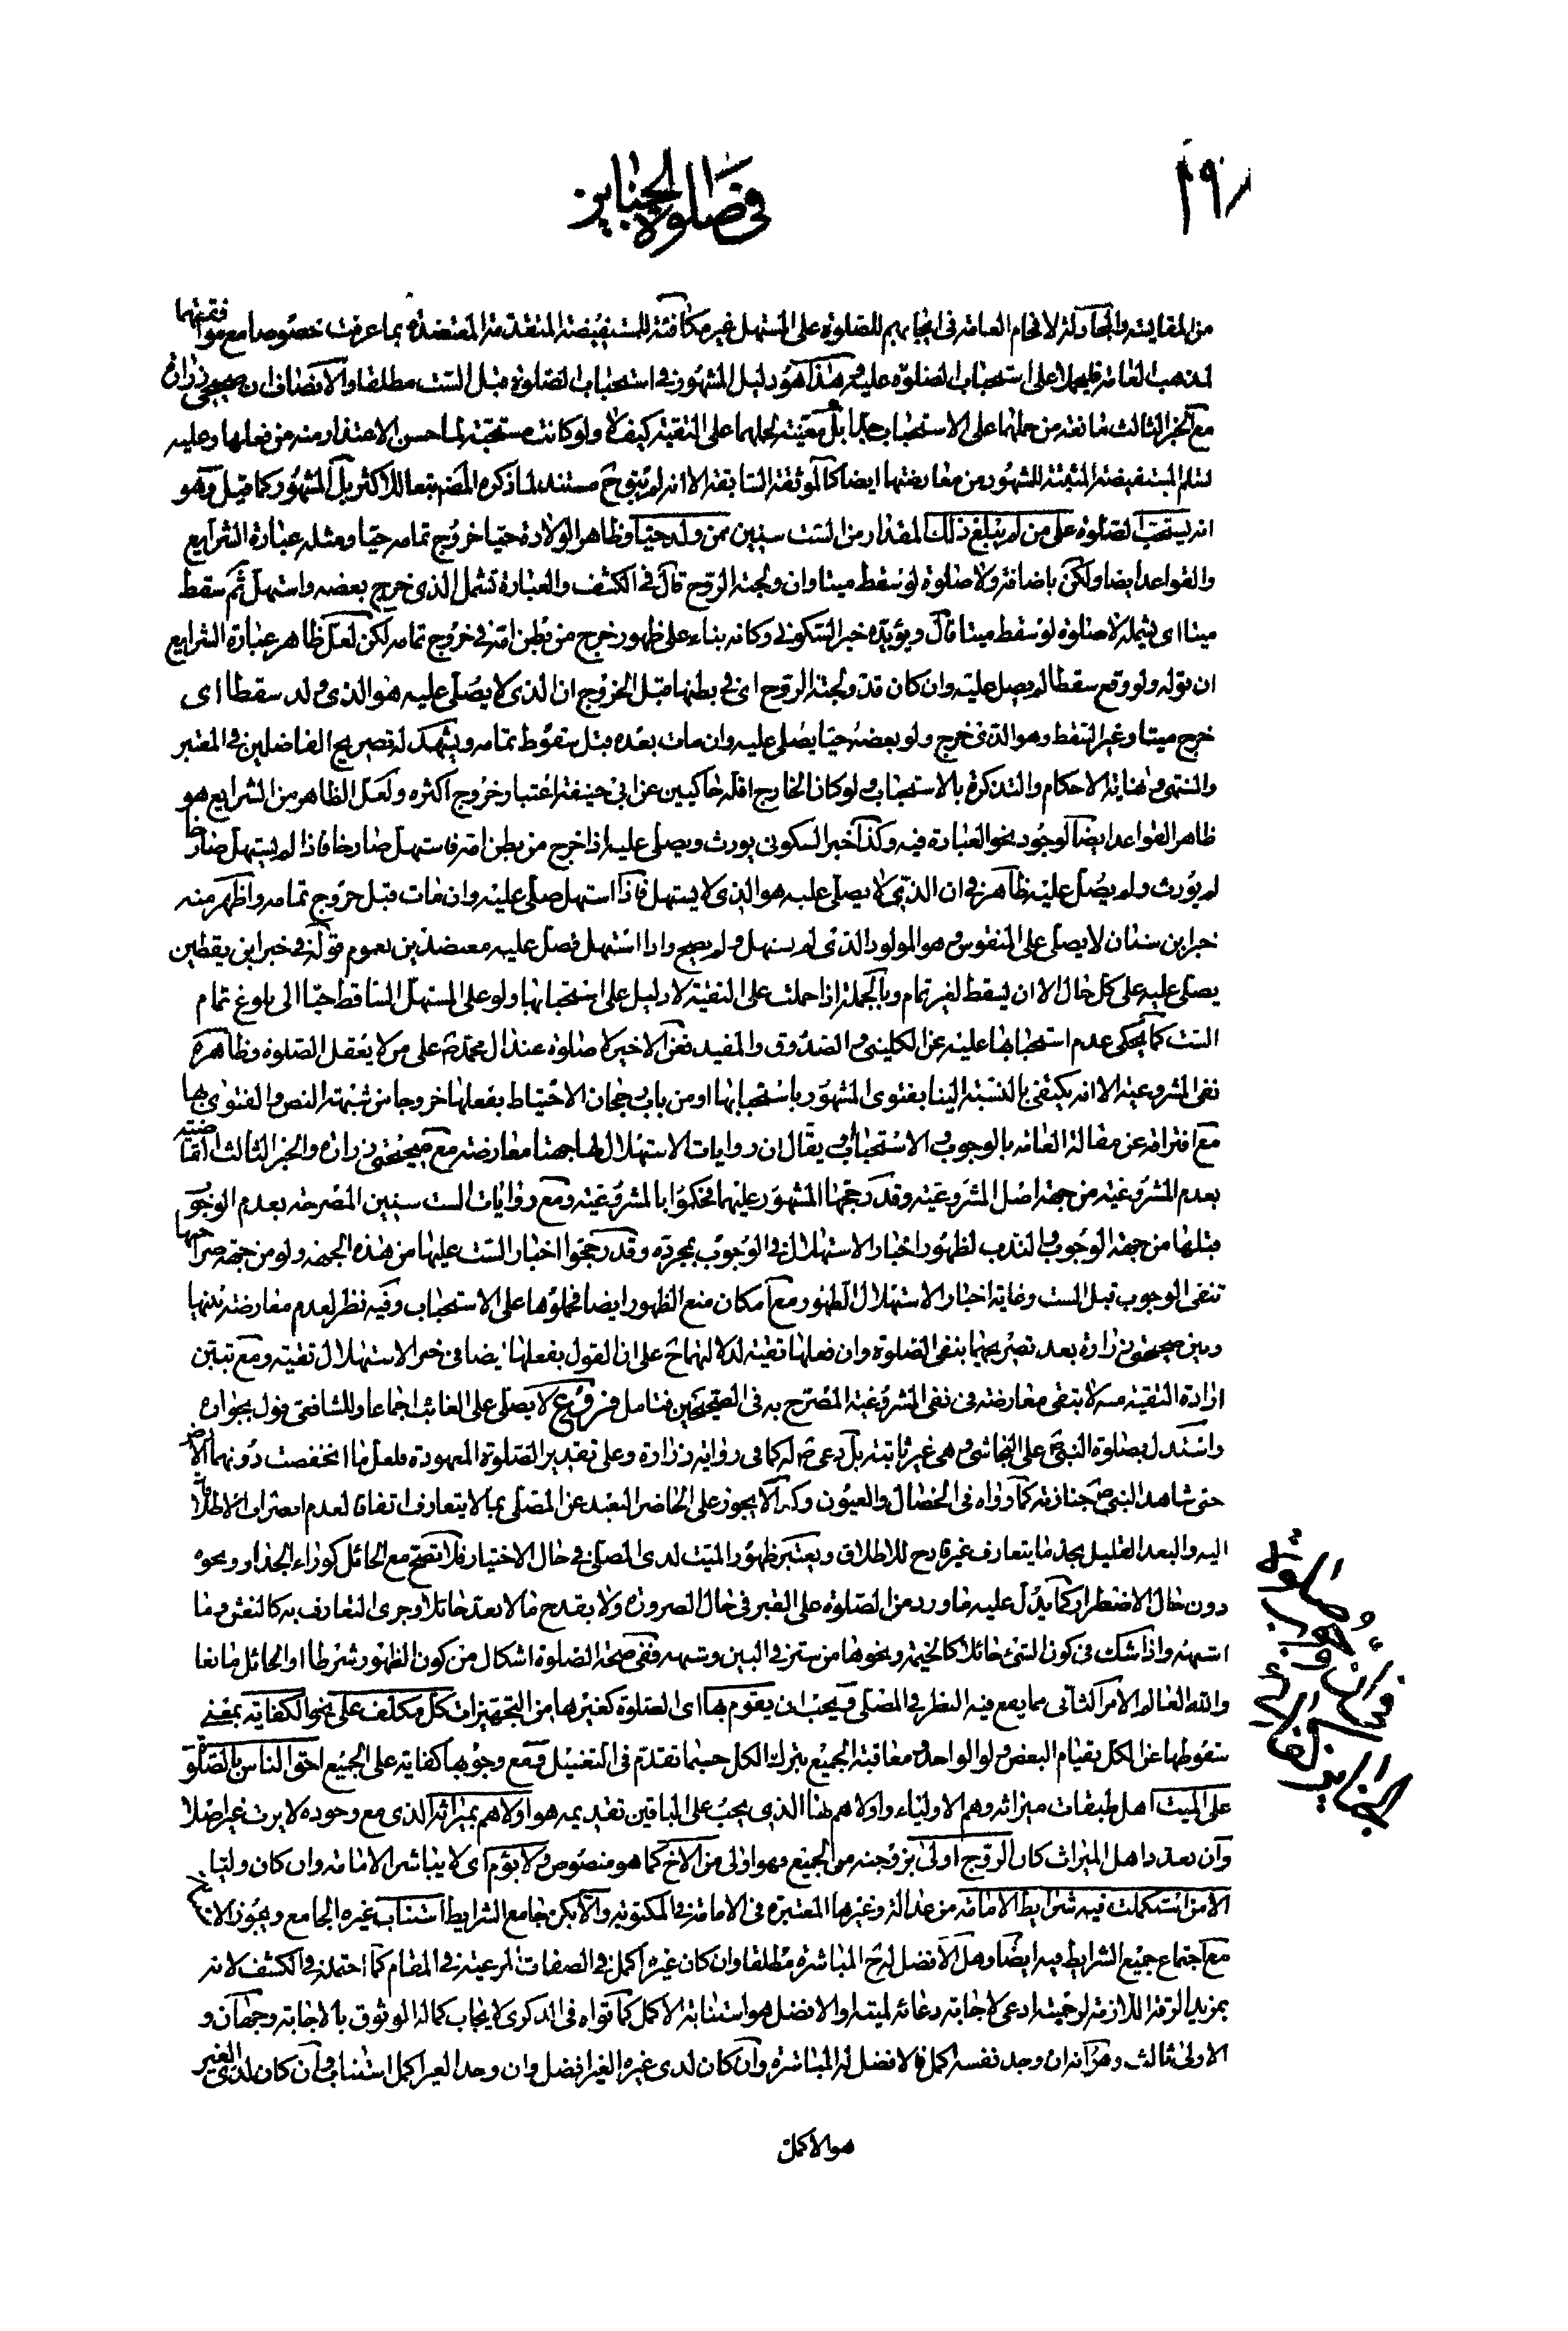 في صلوة الجنايز
من المقايسة والمجادلة لافحام العامة في ايجابهم للصلوة على المستهل غير مكافئة للمستفيضة المتقدمة المعتضدة بما عرفت خصوصا مع موافقتهما
لمذهب العامة فليحملا على استحباب الصلوة عليه هذا هو دليل المشهور في استحباب الصلوة قبل الست مطلقا والانصاف ان صحيحي زرارة
مع الخبر الثالث مانعة من حملها على الاستحباب جدا بل معينة لحملهما على التقية كيف لا ولو كانت مستحبة لما حسن الاعتذار منه من فعلها وعليه
لتلم المستفيضة المثبتة للمشهور من معارضتها ايضا كالموثقة السابقة الا انه لم يبق ح مستند لما ذكره المصنف تبعا للاكثر بل المشهور كما قيل وهو
انه يستحب الصلوة على من لم يبلغ ذلك المقدار من الست سنين ممن ولد حيا وظاهر الولادة حيا خروج تمامه حيا ومثله عبارة الشرايع
والقواعد ايضا ولكن باضافة ولا صلوة لو سقط ميتا وان ولجته الروح قال في الكشف والعبارة تشمل الذي خرج بعضه واستهل ثم سقط
ميتا اي يشمله لا صلوة لو سقط ميتا قال ويؤيده خبر السكوني وكانه بناء على ظهور خرج من بطن امه في خروج تمامه لكن لعل ظاهر عبارة الشرايع
ان قوله ولو وقع سقطا لم يصل عليه وان كان قد ولجته الروح اي في بطنها قبل الخروج ان الذي لا يصلى عليه هو الذي ولد سقطا اي
خرج ميتا وغير السقط وهو الذي خرج ولو بعضه حيا يصلى عليه وان مات بعده قبل سقوط تمامه ويشهد له تصريح الفاضلين في المعتبر
والمنتهى ونهاية الاحكام والتذكرة بالاستحباب ولو كان الخارج اقله حاكيين عن ابي حنيفة اعتبار خروج اكثره ولعل الظاهر من الشرايع هو
ظاهر القواعد ايضا لوجود نحو العبارة فيه وكذا خبر السكوني يورث ويصلى عليه اذا خرج من بطن امه فاستهل صارخا فاذا لم يستهل صارخا
لم يورث ولم يصل عليه ظاهر في ان الذي لا يصلى عليه هو الذي لا يستهل فاذا استهل صلى عليه وان مات قبل خروج تمامه واظهر منه
خبر ابن سنان لا يصلى على المنفوس وهو المولود الذي لم يستهل ولم يصح واذا استهل فصل عليه معتضدين بعموم قوله في خبر ابن يقطين
يصلى عليه على كل حال الا ان يسقط لغير تمام وبالجملة اذا حملت على التقية لا دليل على استحبابها ولو على المستهل الساقط حيا الى بلوغ تمام
الست كما يحكى عدم استحبابها عليه عن الكليني والصدوق والمفيد فعن الاخير لا صلوة عند ال محمد على من لا يعقل الصلوة وظاهره
نفي المشروعية الا انه يكتفى بالنسبة الينا بفتوى المشهور باستحبابها او من باب رجحان الاحتياط بفعلها خروجا من شبهة النص والفتوى بها
مع افتراقه عن مقالة العامة بالوجوب والاستحباب ويقال ان روايات الاستهلال لها جهتا معارضة مع صحيحتي زرارة والخبر الثالث القاضية
بعدم المشروعية من جهة اصل المشروعية وقد رجحها المشهور عليهما فحكموا بالمشروعية ومع روايات الست سنين المصرحة بعدم الوجوب
قبلها من جهة الوجوب والندب لظهور اخبار الاستهلال في الوجوب بمجرده وقد رجحوا اخبار الست عليها من هذه الجهة ولو من جهة صراحتها
تنفي الوجوب قبل الست وغاية اخبار الاستهلال الظهور مع امكان منع الظهور ايضا فحملوها على الاستحباب وفيه نظر لعدم معارضة بينها
وبين صحيحتي زرارة بعد تصريحهما بنفي الصلوة وان فعلها تقية لدلالتهما ح على ان القول بفعلها ايضا في خبر الاستهلال تقية ومع تبين
ارادة التقية منه لا يبقى معارضة في نفي المشروعية المصرح به في الصحيحين فتامل فروع لا يصلى على الغائب اجماعا وللشافعي قول بجوازه
واستدل بصلوة النبي على النجاشي وهي غير ثابتة بل دعى له كما في رواية زرارة وعلى تقدير الصلوة المعهودة فلعل ما انخفضت دونهما الارض
حتى شاهد النبي ص جنازته كما رواه في الخصال والعيون وكذا لا يجوز على الحاضر البعيد عن المصلي بما لا يتعارف اتفاقا لعدم انصراف الاطلاق
اليه والبعد القليل بحد ما يتعارف غير قادح للاطلاق ويعتبر ظهور الميت لدى المصلي في حال الاختيار فلا تصح مع الحائل كوراء الجدار ونحوه
دون حال الاضطرار كما يدل عليه ما ورد من الصلوة على القبر في حال الضرورة ولا يقدح ما لا يعد حائلا وجرى التعارف به كالنعش وما
اشبهه واذا شك في كون الشئ حائلا كالخيمة ونحوها من ستر في البين وشبهه ففي صحة الصلوة اشكال من كون الظهور شرطا او الحائل مانعا
والله العالم الامر الثاني مما يقع فيه النظر في المصلي ويجب ان يقوم بها اي الصلوة كغيرها من التجهيزات كل مكلف على نحو الكفاية بمعنى
سقوطها عن الكل بقيام البعض ولو الواحد ومعاقبة الجميع بترك الكل حسبما تقدم في التغسيل ومع وجوبها كفاية على الجميع احق الناس بالصلوة
على الميت اهل طبقات ميراثه وهم الاولياء واولاهم هنا الذي يجب على الباقين تقديمه هو اولاهم بميراثه الذي مع وجوده لا يرث غيره اصلا
وان تعدد اهل الميراث كان الزوج اولى بزوجته من الجميع وهو اولى من الاخ كما هو منصوص ولا يؤم اي لا يباشر الامامة وان كان وليا
الا من استكملت فيه شرايط الامامة من عدالة وغيرها المعتبرة في الامامة في المكتوبة والا يكن جامع الشرايط استناب غيره الجامع ويجوز الاستنابة
مع اجتماع جميع الشرايط فيه ايضا وهل الافضل له ح المباشرة مطلقا وان كان غيره اكمل في الصفات المرعية في المقام كما احتمله في الكشف لانه
بمزيد الرقة اللازمة لوحيته ادعى لاجابة دعائه لميته او الافضل هو استنابة الاكمل كما قواه في الذكرى لايجاب كماله الوثوق بالاجابة وجهان و
الاولى ثالث وهو انه ان وجد نفسه اكمل فالافضل له المباشرة وان كان لدى غيره الغير افضل وان وجد الغير اكمل استناب وان كان لدى الغير
هو الاكمل
الجنايز